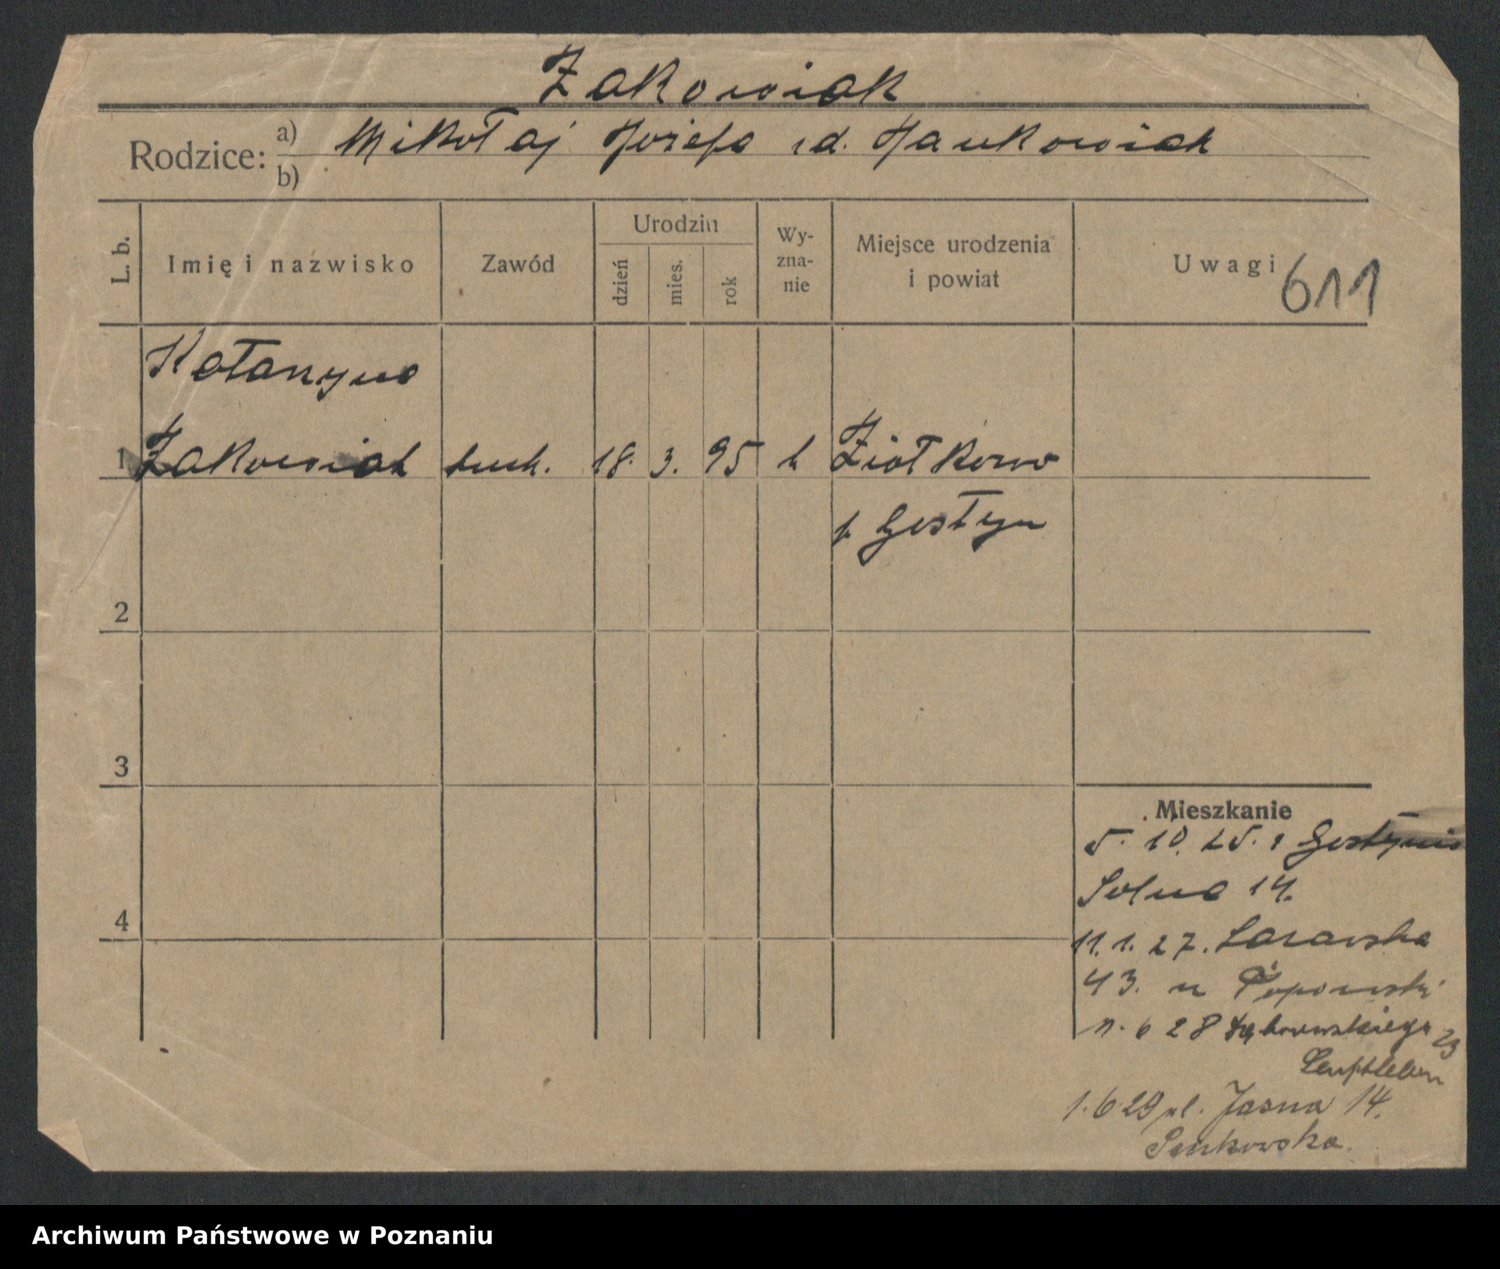 Żakowiak
Rodzice: a) Mikołaj Józefa z d. Jankowiak
b)
L. b.
Imię i nazwisko
Zawód
Urodzin
dzień
mies.
rok
Wy-
zna-
nie
Miejsce urodzenia
i powiat
Uwagi
611
Katarzyna
1 Żakowiak kuch. 18. 3. 95 k Ziółkowo
p. Gostyń
2
3
4
Mieszkanie
5. 10. 25. z Gostynia
Solna 14.
11. 1. 27. Łazarska
43. u Popowski
11. 6 28 Dąbrowskiego 23
1. 6 29 pl. Jasna 14.
Senkowska.
Archiwum Państwowe w Poznaniu